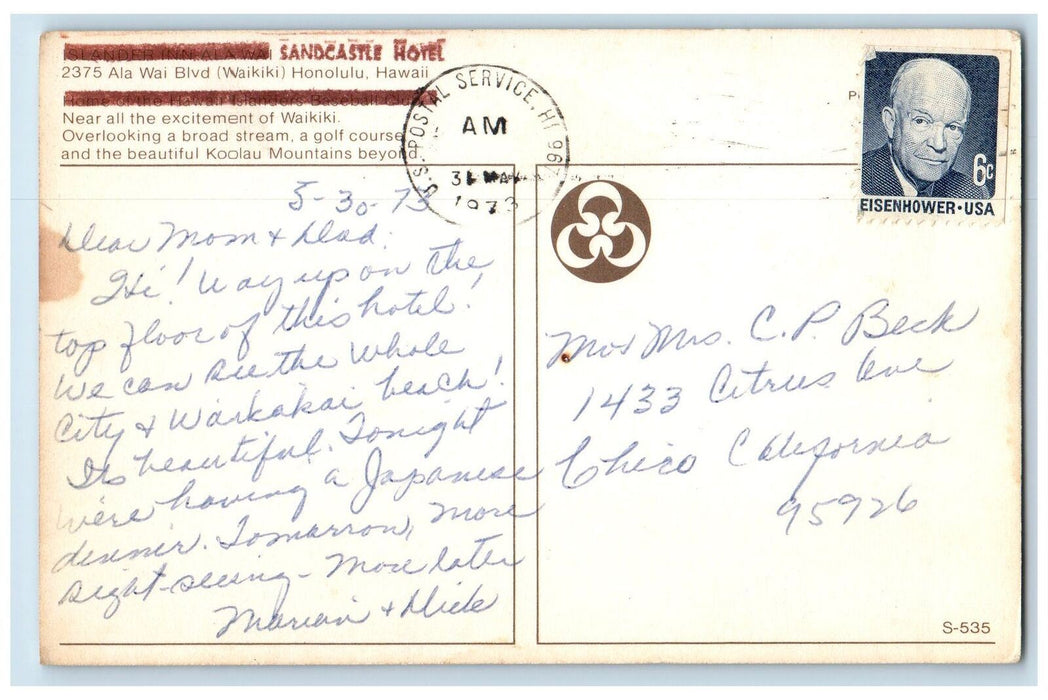 ISLANDER INN ALA WAI SANDCASTLE HOTEL
2375 Ala Wai Blvd (Waikiki) Honolulu, Hawaii
Home of the Hawaii Islanders Baseball Club
Near all the excitement of Waikiki.
Overlooking a broad stream, a golf course
and the beautiful Koolau Mountains beyond.
U.S. POSTAL SERVICE, HI 967
AM
31 MAY
1973
6c
EISENHOWER·USA
5-30-73
Dear Mom & Dad:
Hi! Way up on the
top floor of this hotel!
We can see the whole
City & Waikakai beach!
Its beautiful. Tonight
we're having a Japanese
dinner. Tomarrow, more
sight-seeing - More later
Marian & Dick
Mr & Mrs. C. P. Beck
1433 Citrus Ave
Chico California
95926
S-535